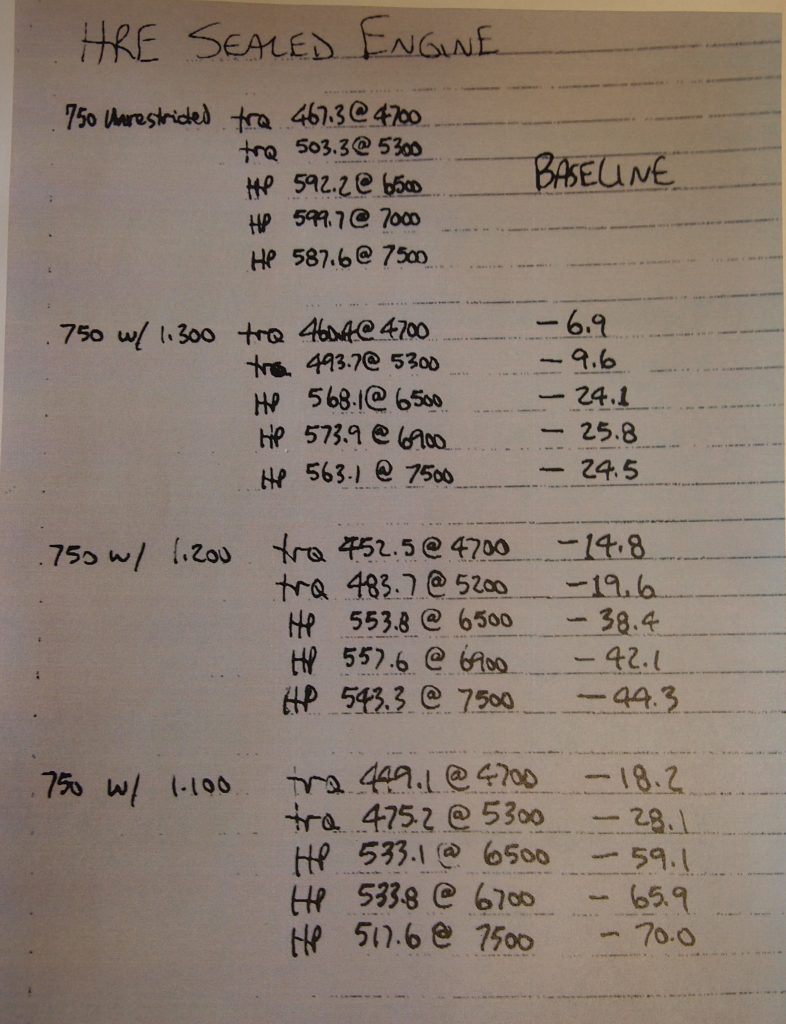 HRE SEALED ENGINE
750 Unrestricted trq 467.3 @ 4700
trq 503.3 @ 5300
BASELINE
HP 592.2 @ 6500
HP 599.7 @ 7000
HP 587.6 @ 7500
750 w/ 1.300 trq 460.4 @ 4700 - 6.9
trq 493.7 @ 5300 - 9.6
HP 568.1 @ 6500 - 24.1
HP 573.9 @ 6900 - 25.8
HP 563.1 @ 7500 - 24.5
750 w/ 1.200 trq 452.5 @ 4700 - 14.8
trq 483.7 @ 5200 - 19.6
HP 553.8 @ 6500 - 38.4
HP 557.6 @ 6900 - 42.1
HP 543.3 @ 7500 - 44.3
750 w/ 1.100 trq 449.1 @ 4700 - 18.2
trq 475.2 @ 5300 - 28.1
HP 533.1 @ 6500 - 59.1
HP 533.8 @ 6700 - 65.9
HP 517.6 @ 7500 - 70.0